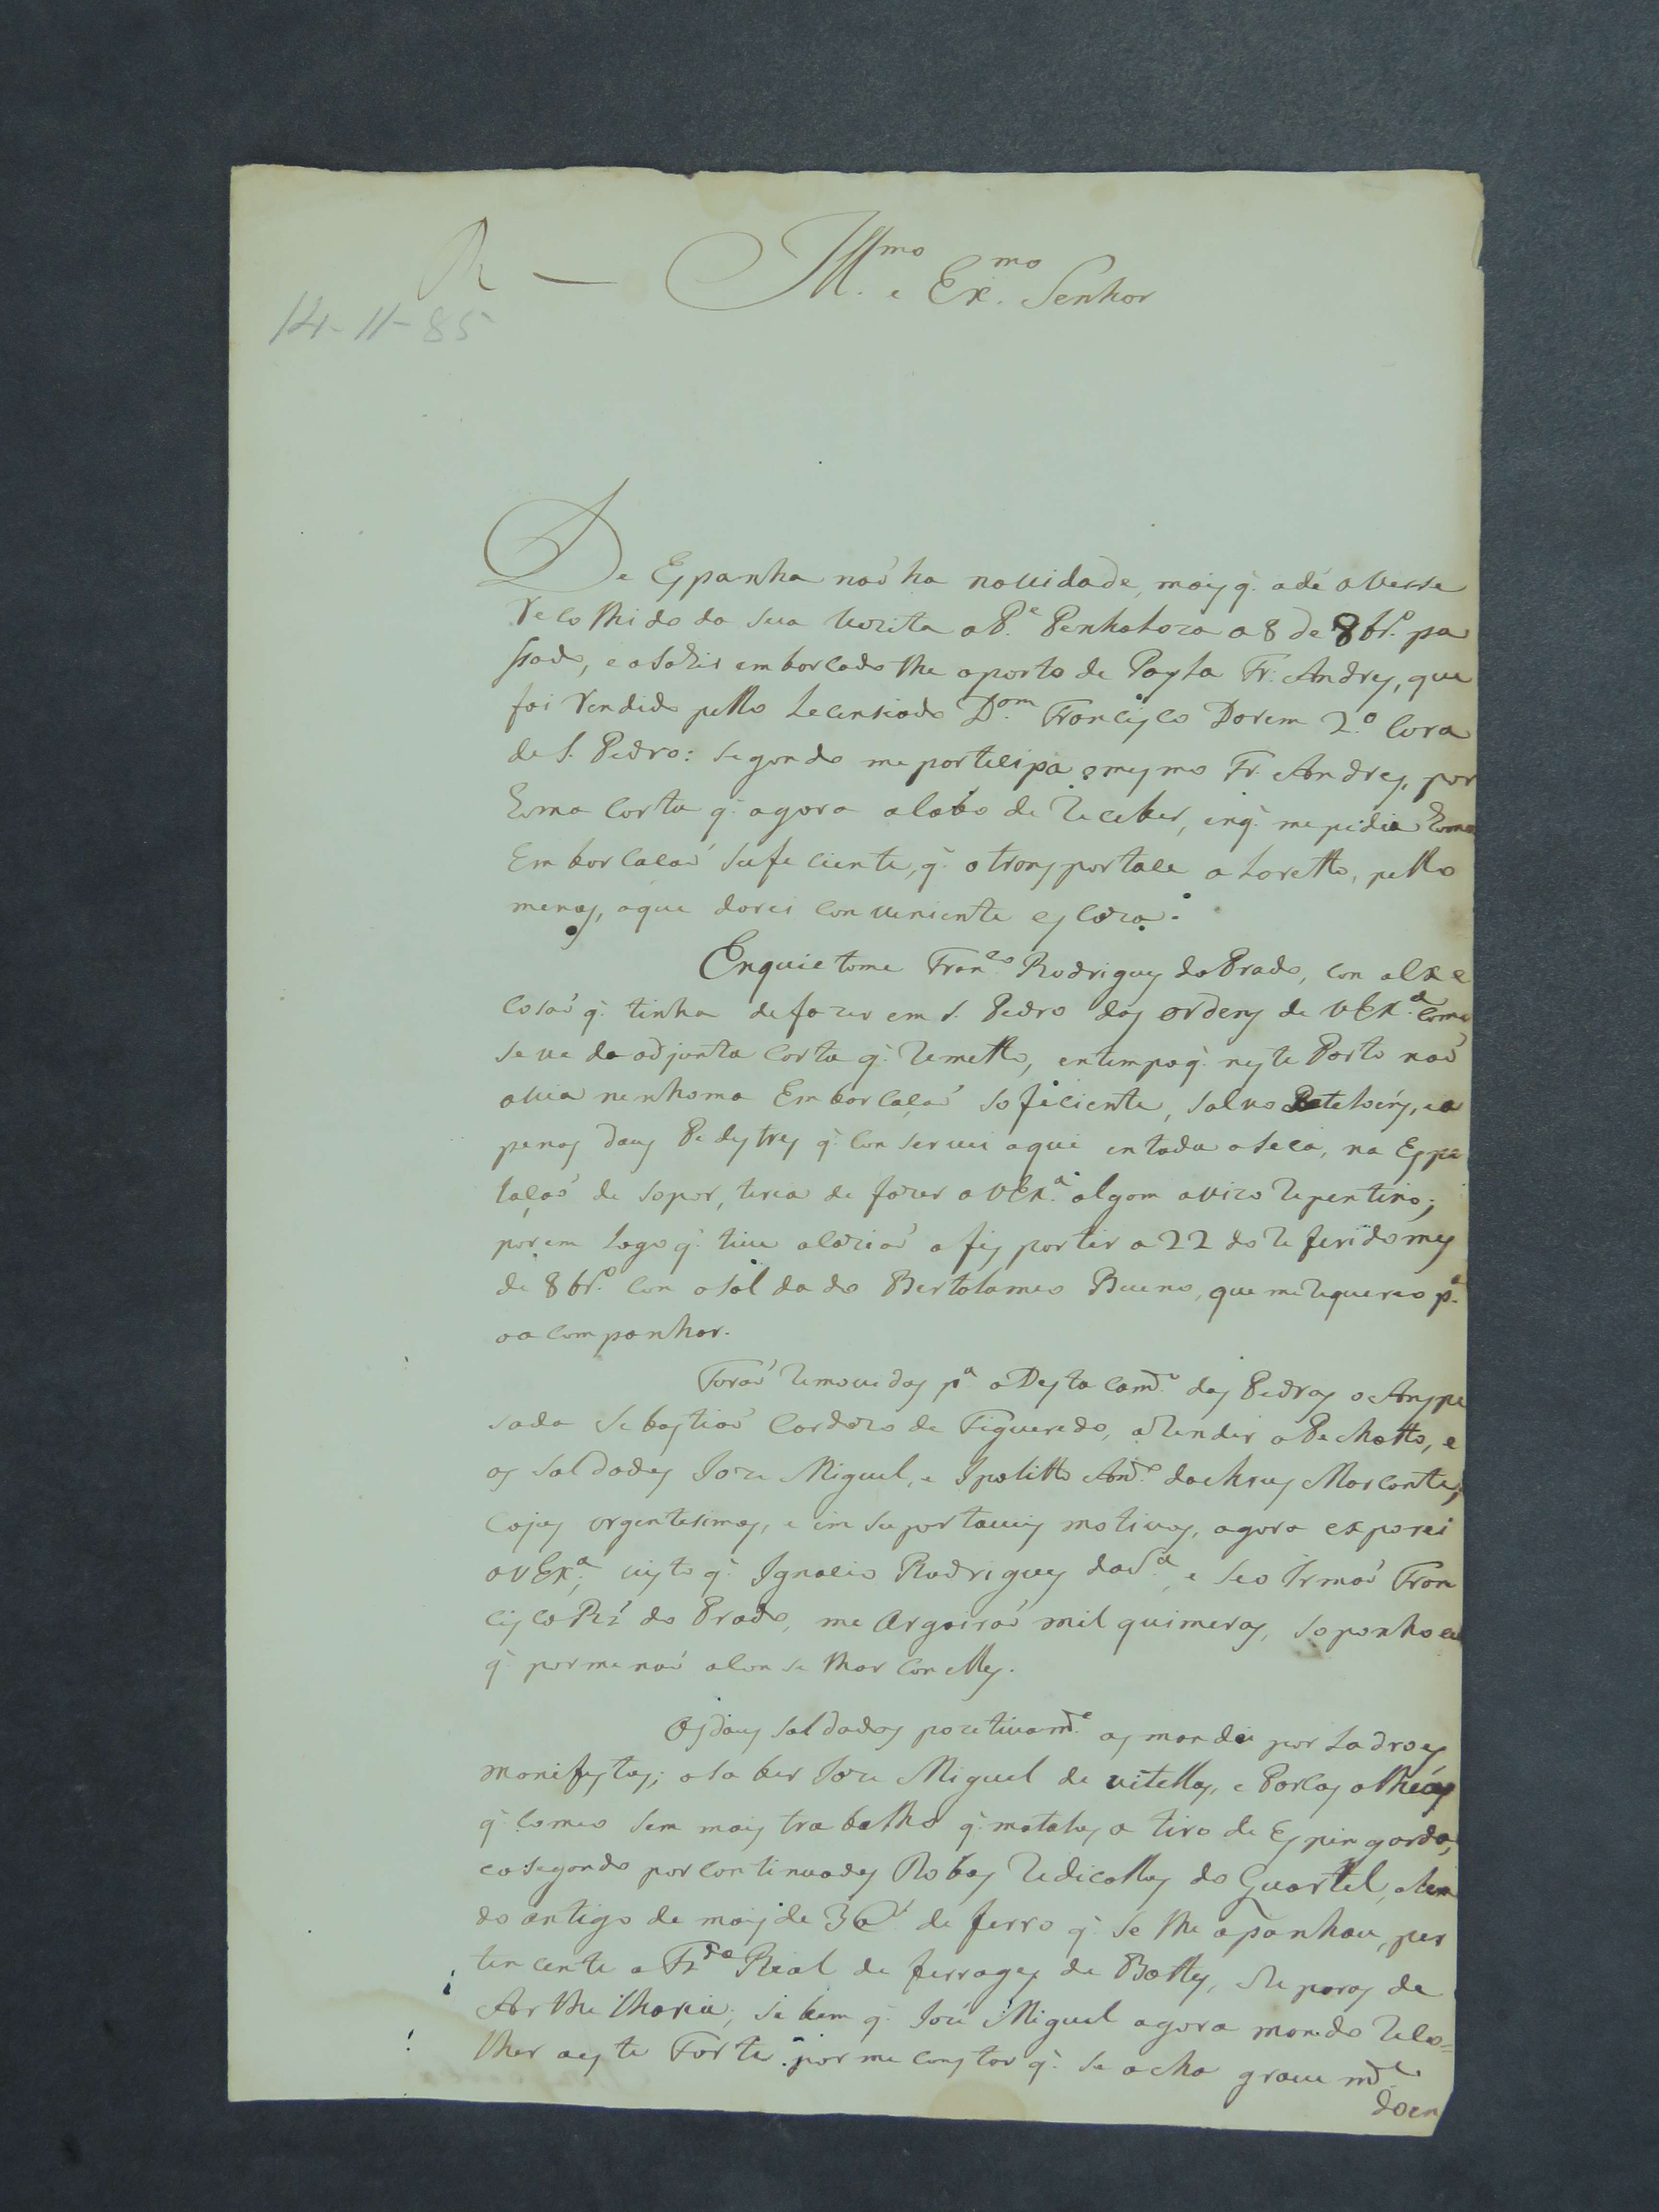 R —
Ill.mo e Ex.mo Senhor
14-11-85
De Espanha naõ ha novidade, mais q̃. adé averse
recolhido da sua vezita o P.e Penhaloza a 8 de 8br.o pa
ssado, e a
embarcado lhe o porto de Payta Fr. Andres, que
foi rendido pello Lecensiado D.om Francisco Dorem 2.o Cura
de S. Pedro: segundo me partesipa o mesmo Fr. Andres, por
huma carta q̃. agora acabo de receber, in q̃. me pidia huma
Embarcaçaõ sufeciente, q̃. o transportace a Loretto, pello
menos, a que darei conveniente escaza.
Enquietome Fran.co Rodrigues do Prado, con al exe
cosaõ q̃. tinha de fazer em S. Pedro das ordens de V Ex.a como
se ve da adjunta carta q̃. remetto, en tempo q̃. neste Porto naõ
avia nenhoma Embarcaçaõ soficiente, salvo Bateloens, e a
penas dous Pedestres q̃. conservei aqui en toda a seca, na Espe
taçaõ de sopor, teria de fazer a V Ex.a algom avizo repentino;
porem logo q̃. tive a la o fis partir a 22 do referido mes
de 8br.o con o soldado Bertolameo Bueno, que me requereo p.a
o acompanhar.
Foraõ removidos p.a o Destacam.to das Pedras o Anspe
sada Sebastiaõ Cardozo de Figueredo, a render o Pechotto, e
os soldados Joze Miguel, e Ipolitto And.e Marcante,
cojos orgentesimos, e insuportaveis motivos, agora exporei
a V Ex.a; visto q̃. Ignacio Rodrigues da S.a, e seo Irmaõ Fran
cisco Rz̃ do Prado, me Argoiraõ mil quimeras, soponho eu
q̃. por me naõ aconselhar con elles.
Os dous soldados pozetivam.te os mandei por Ladroes
manifestos; a saber Joze Miguel de vitellas, e Porcos alheos
q̃. comeo sem mais trabalho q̃. matalos a tiro de Espingarda,
e o segundo por continuados Robos redicollos do Quartel, alem
do antigo de mais de 3@.s de ferro q̃. se lhe apanhou, per
tencente a Fz.da Real de ferrages de Bottes, Reparos de
Arthelharia; se bem q̃. Joze Miguel agora mando reco=
lher a este Forte por me constar q̃. se acha gravem.te
doen